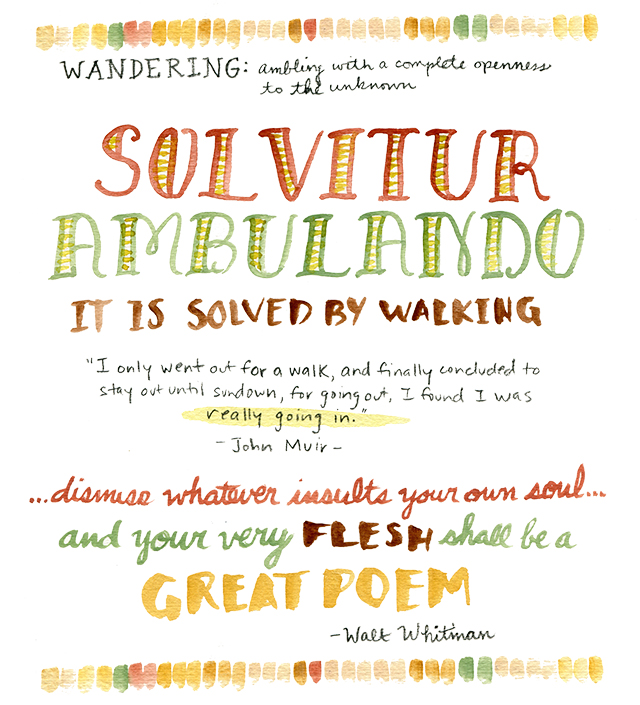 WANDERING: ambling with a complete openness
to the unknown
SOLVITUR
AMBULANDO
IT IS SOLVED BY WALKING
"I only went out for a walk, and finally concluded to
stay out until sundown, for going out, I found I was
really going in."
- John Muir -
...dismiss whatever insults your own soul...
and your very FLESH shall be a
GREAT POEM
- Walt Whitman